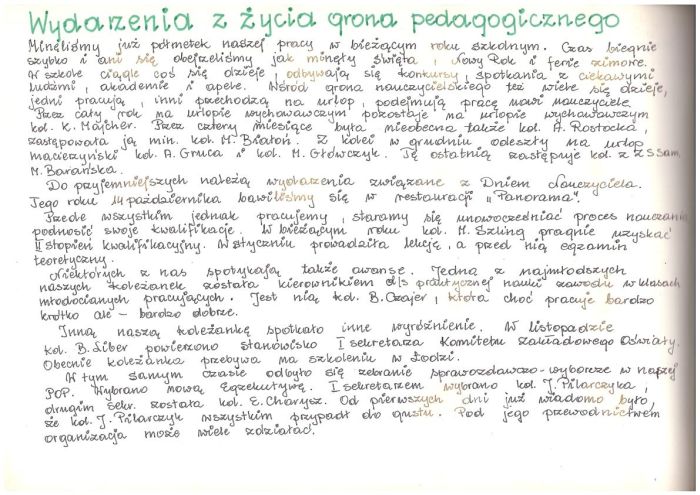 Wydarzenia z życia grona pedagogicznego
Minęliśmy już półmetek naszej pracy w bieżącym roku szkolnym. Czas biegnie
szybko i ani się obejrzeliśmy jak minęły święta, Nowy Rok i ferie zimowe.
W szkole ciągle coś się dzieje, odbywają się konkursy, spotkania z ciekawymi
ludźmi, akademie i apele. Wśród grona nauczycielskiego też wiele się dzieje,
jedni pracują, inni przechodzą na urlop, podejmują pracę nowi nauczyciele.
Przez cały rok na urlopie wychowawczym pozostaje na urlopie wychowawczym
kol. K. Majcher. Przez cztery miesiące była nieobecna także kol. A. Rostocka,
zastępowała ją min. kol. M. Białoń. Z kolei w grudniu odeszły na urlop
macierzyński kol. A. Gruca i kol. M. Główczyk. Tę ostatnią zastępuje kol. z ZSSam.
M. Barańska.
Do przyjemniejszych należą wydarzenia związane z Dniem Nauczyciela.
Jego roku 14 października bawiliśmy się w restauracji „Panorama".
Przede wszystkim jednak pracujemy, staramy się unowocześniać proces nauczania
podnosić swoje kwalifikacje. W bieżącym roku kol. M. Szling pragnie uzyskać
II stopień kwalifikacyjny. W styczniu prowadziła lekcję, a przed nią egzamin
teoretyczny.
Niektórych z nas spotykają także awanse. Jedna z najmłodszych
naszych koleżanek została kierownikiem d/s praktycznej nauki zawodu w klasach
młodocianych pracujących. Jest nią kol. B. Czajer, która choć pracuje bardzo
krótko ale - bardzo dobrze.
Inną naszą koleżankę spotkało inne wyróżnienie. W listopadzie
kol. B. Liber powierzono stanowisko I sekretarza Komitetu Zakładowego Oświaty.
Obecnie koleżanka przebywa na szkoleniu w Łodzi.
W tym samym czasie odbyło się zebranie sprawozdawczo-wyborcze w naszej
POP. Wybrano nową Egzekutywę. I sekretarzem wybrano kol. J. Pilarczyka,
drugim sekr. została kol. E. Charysz. Od pierwszych dni już wiadomo było,
że kol. J. Pilarczyk wszystkim przypadł do gustu. Pod jego przewodnictwem
organizacja może wiele zdziałać.